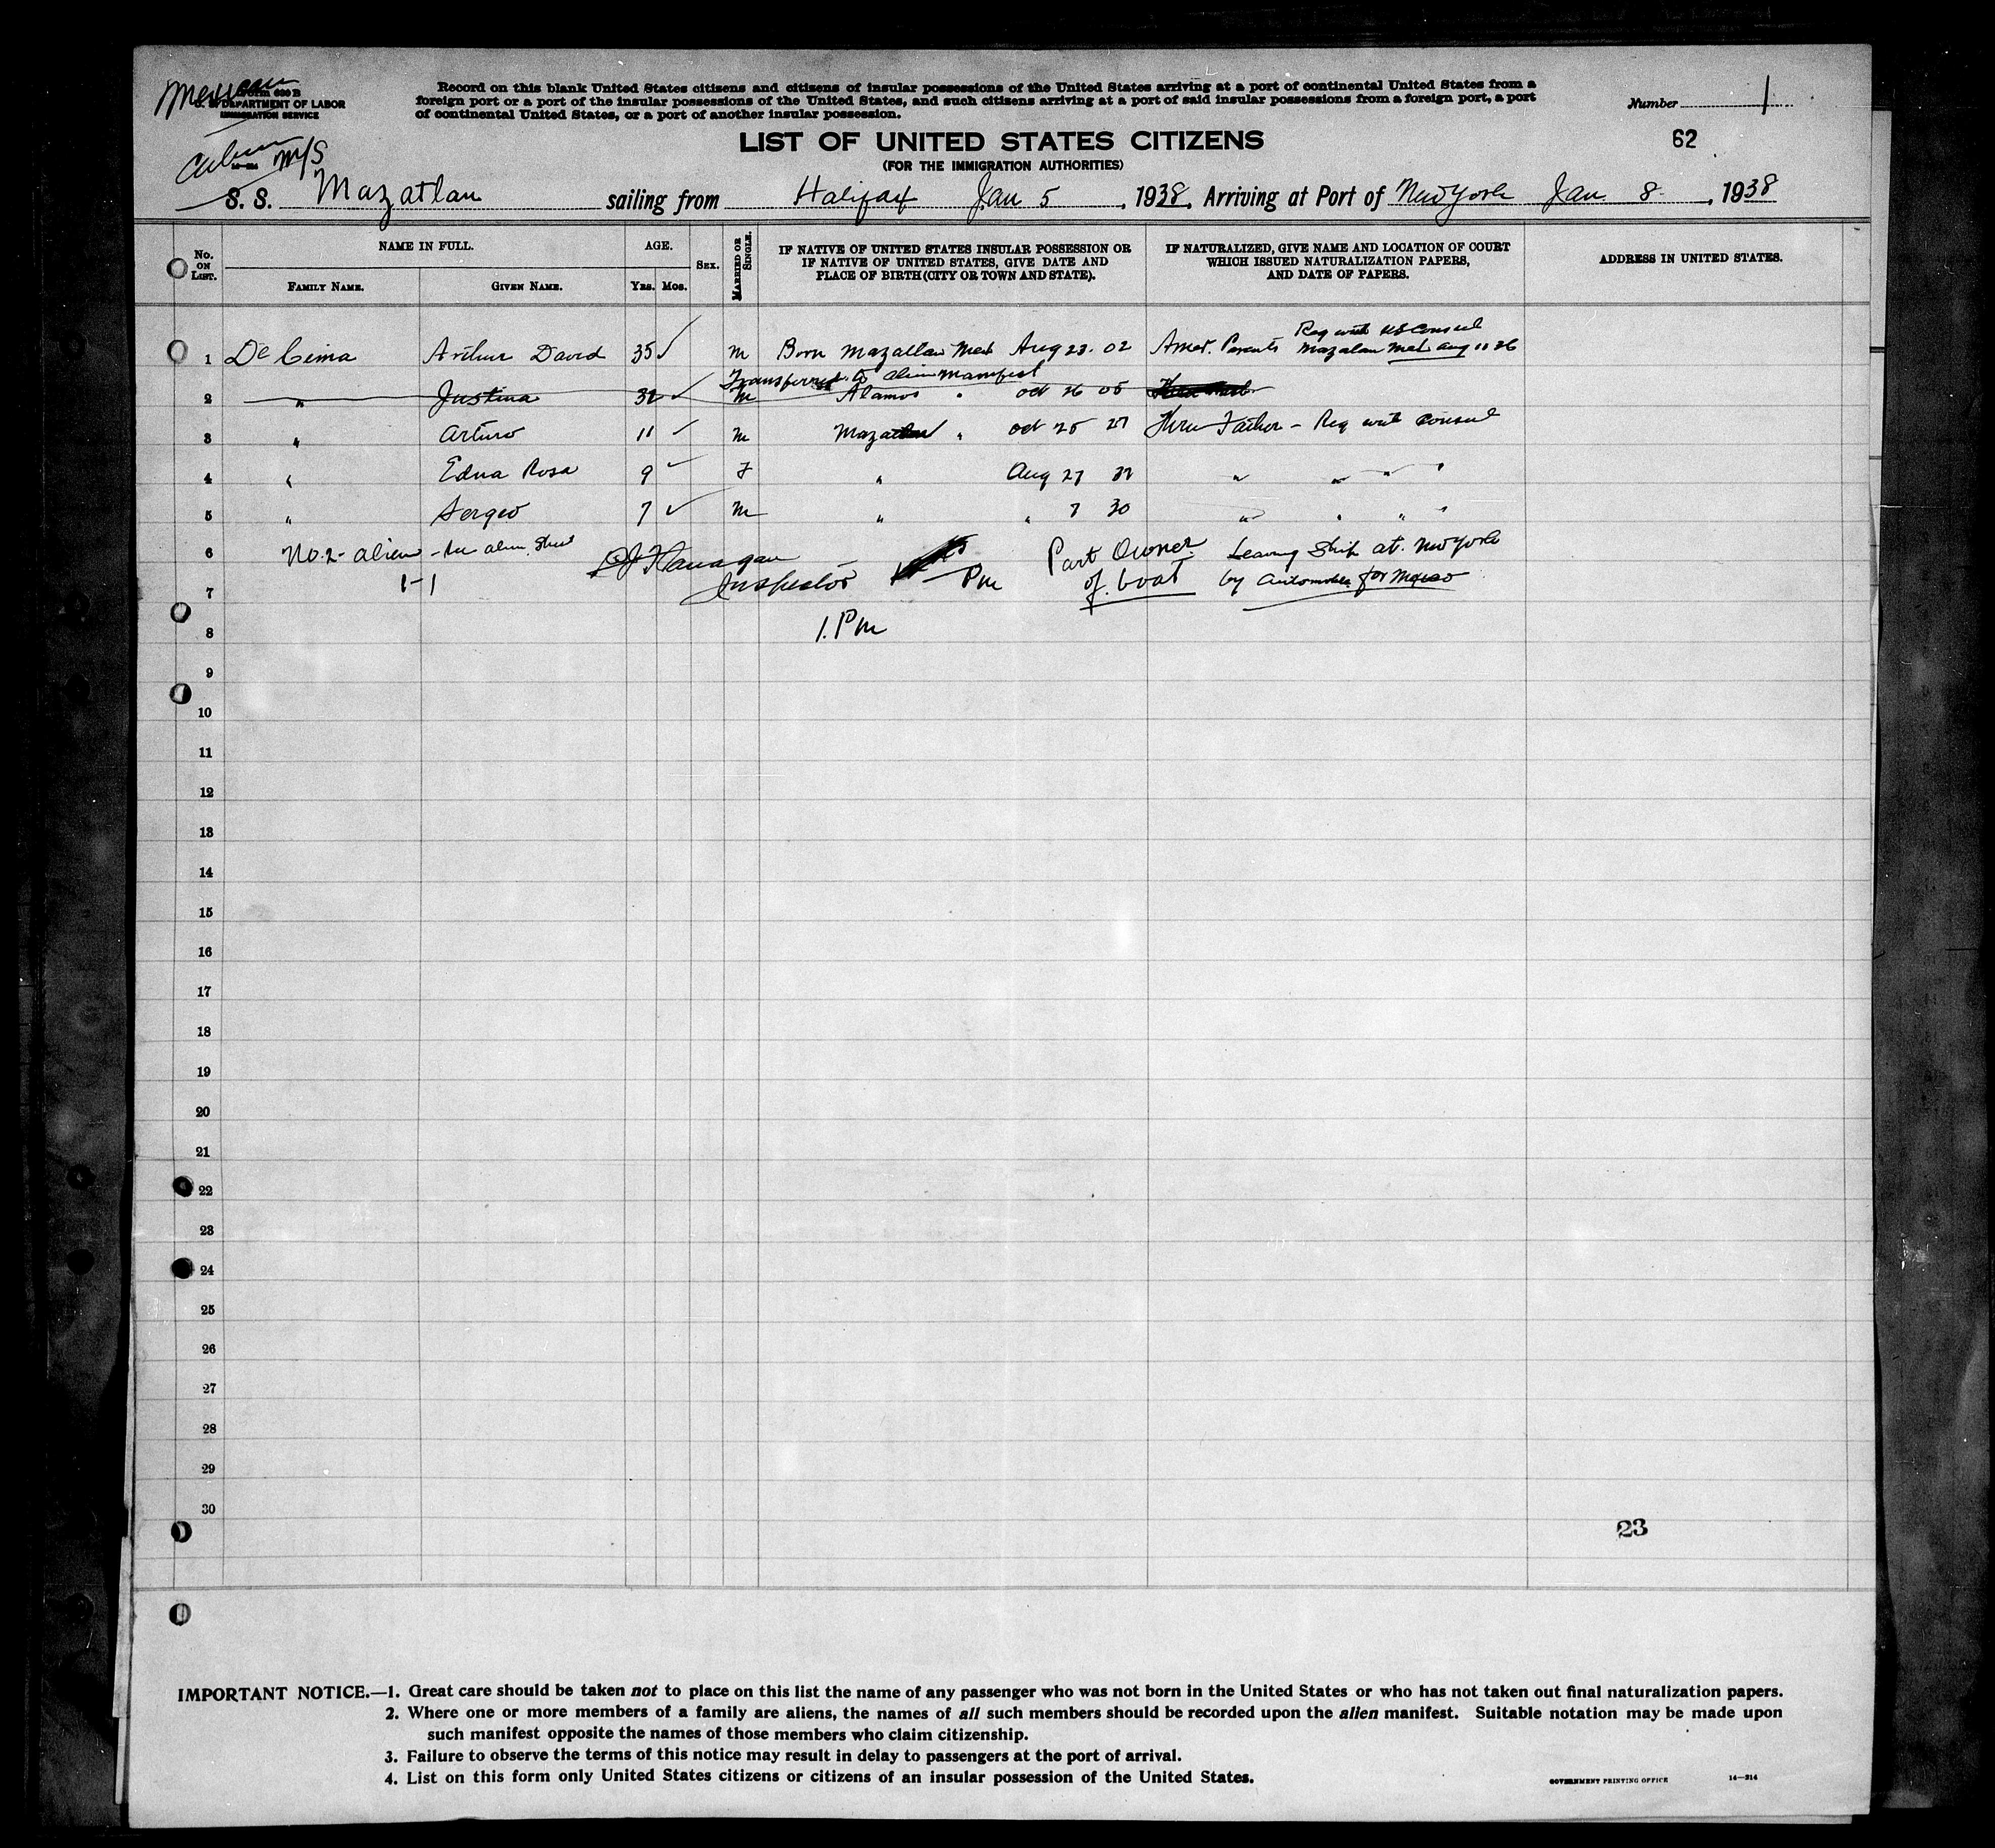 Mexican
Form 630 B
U. S. DEPARTMENT OF LABOR
IMMIGRATION SERVICE
Record on this blank United States citizens and citizens of insular possessions of the United States arriving at a port of continental United States from a
foreign port or a port of the insular possessions of the United States, and such citizens arriving at a port of said insular possessions from a foreign port, a port
of continental United States, or a port of another insular possession.
Number 1
LIST OF UNITED STATES CITIZENS
62
(FOR THE IMMIGRATION AUTHORITIES)
M/S
S. S. Mazatlan sailing from Halifax Jan 5, 1938, Arriving at Port of New York Jan 8, 1938
No. ON LIST.
NAME IN FULL.
FAMILY NAME. GIVEN NAME.
AGE.
YRS. MOS.
SEX.
MARRIED OR SINGLE.
IF NATIVE OF UNITED STATES INSULAR POSSESSION OR
IF NATIVE OF UNITED STATES, GIVE DATE AND
PLACE OF BIRTH (CITY OR TOWN AND STATE).
IF NATURALIZED, GIVE NAME AND LOCATION OF COURT
WHICH ISSUED NATURALIZATION PAPERS,
AND DATE OF PAPERS.
ADDRESS IN UNITED STATES.
Reg with US Consul
1 De Cima Arthur David 35 M Born Mazatlan Mex Aug 23. 02 Amer. Parents Mazatlan Mex Aug 11 26
Transferred to alien manifest
2 " Justina 32 M Alamos " Oct 26 05
3 " Arturo 11 M Mazatlan " Oct 25 27 Thru Father - Reg with Consul
4 " Edna Rosa 9 F " Aug 27 " " "
5 " Sergio 7 M " " 7 30 " " " "
6 No. 2 - alien - see alien sheet Flanagan Part Owner Leaving Ship at New York
7 1-1 Inspector Pm of boat by automobile for Mexico
8 1. Pm
9
10
11
12
13
14
15
16
17
18
19
20
21
22
23
24
25
26
27
28
29
30
23
IMPORTANT NOTICE.—1. Great care should be taken not to place on this list the name of any passenger who was not born in the United States or who has not taken out final naturalization papers.
2. Where one or more members of a family are aliens, the names of all such members should be recorded upon the alien manifest. Suitable notation may be made upon
such manifest opposite the names of those members who claim citizenship.
3. Failure to observe the terms of this notice may result in delay to passengers at the port of arrival.
4. List on this form only United States citizens or citizens of an insular possession of the United States.
GOVERNMENT PRINTING OFFICE 14—314